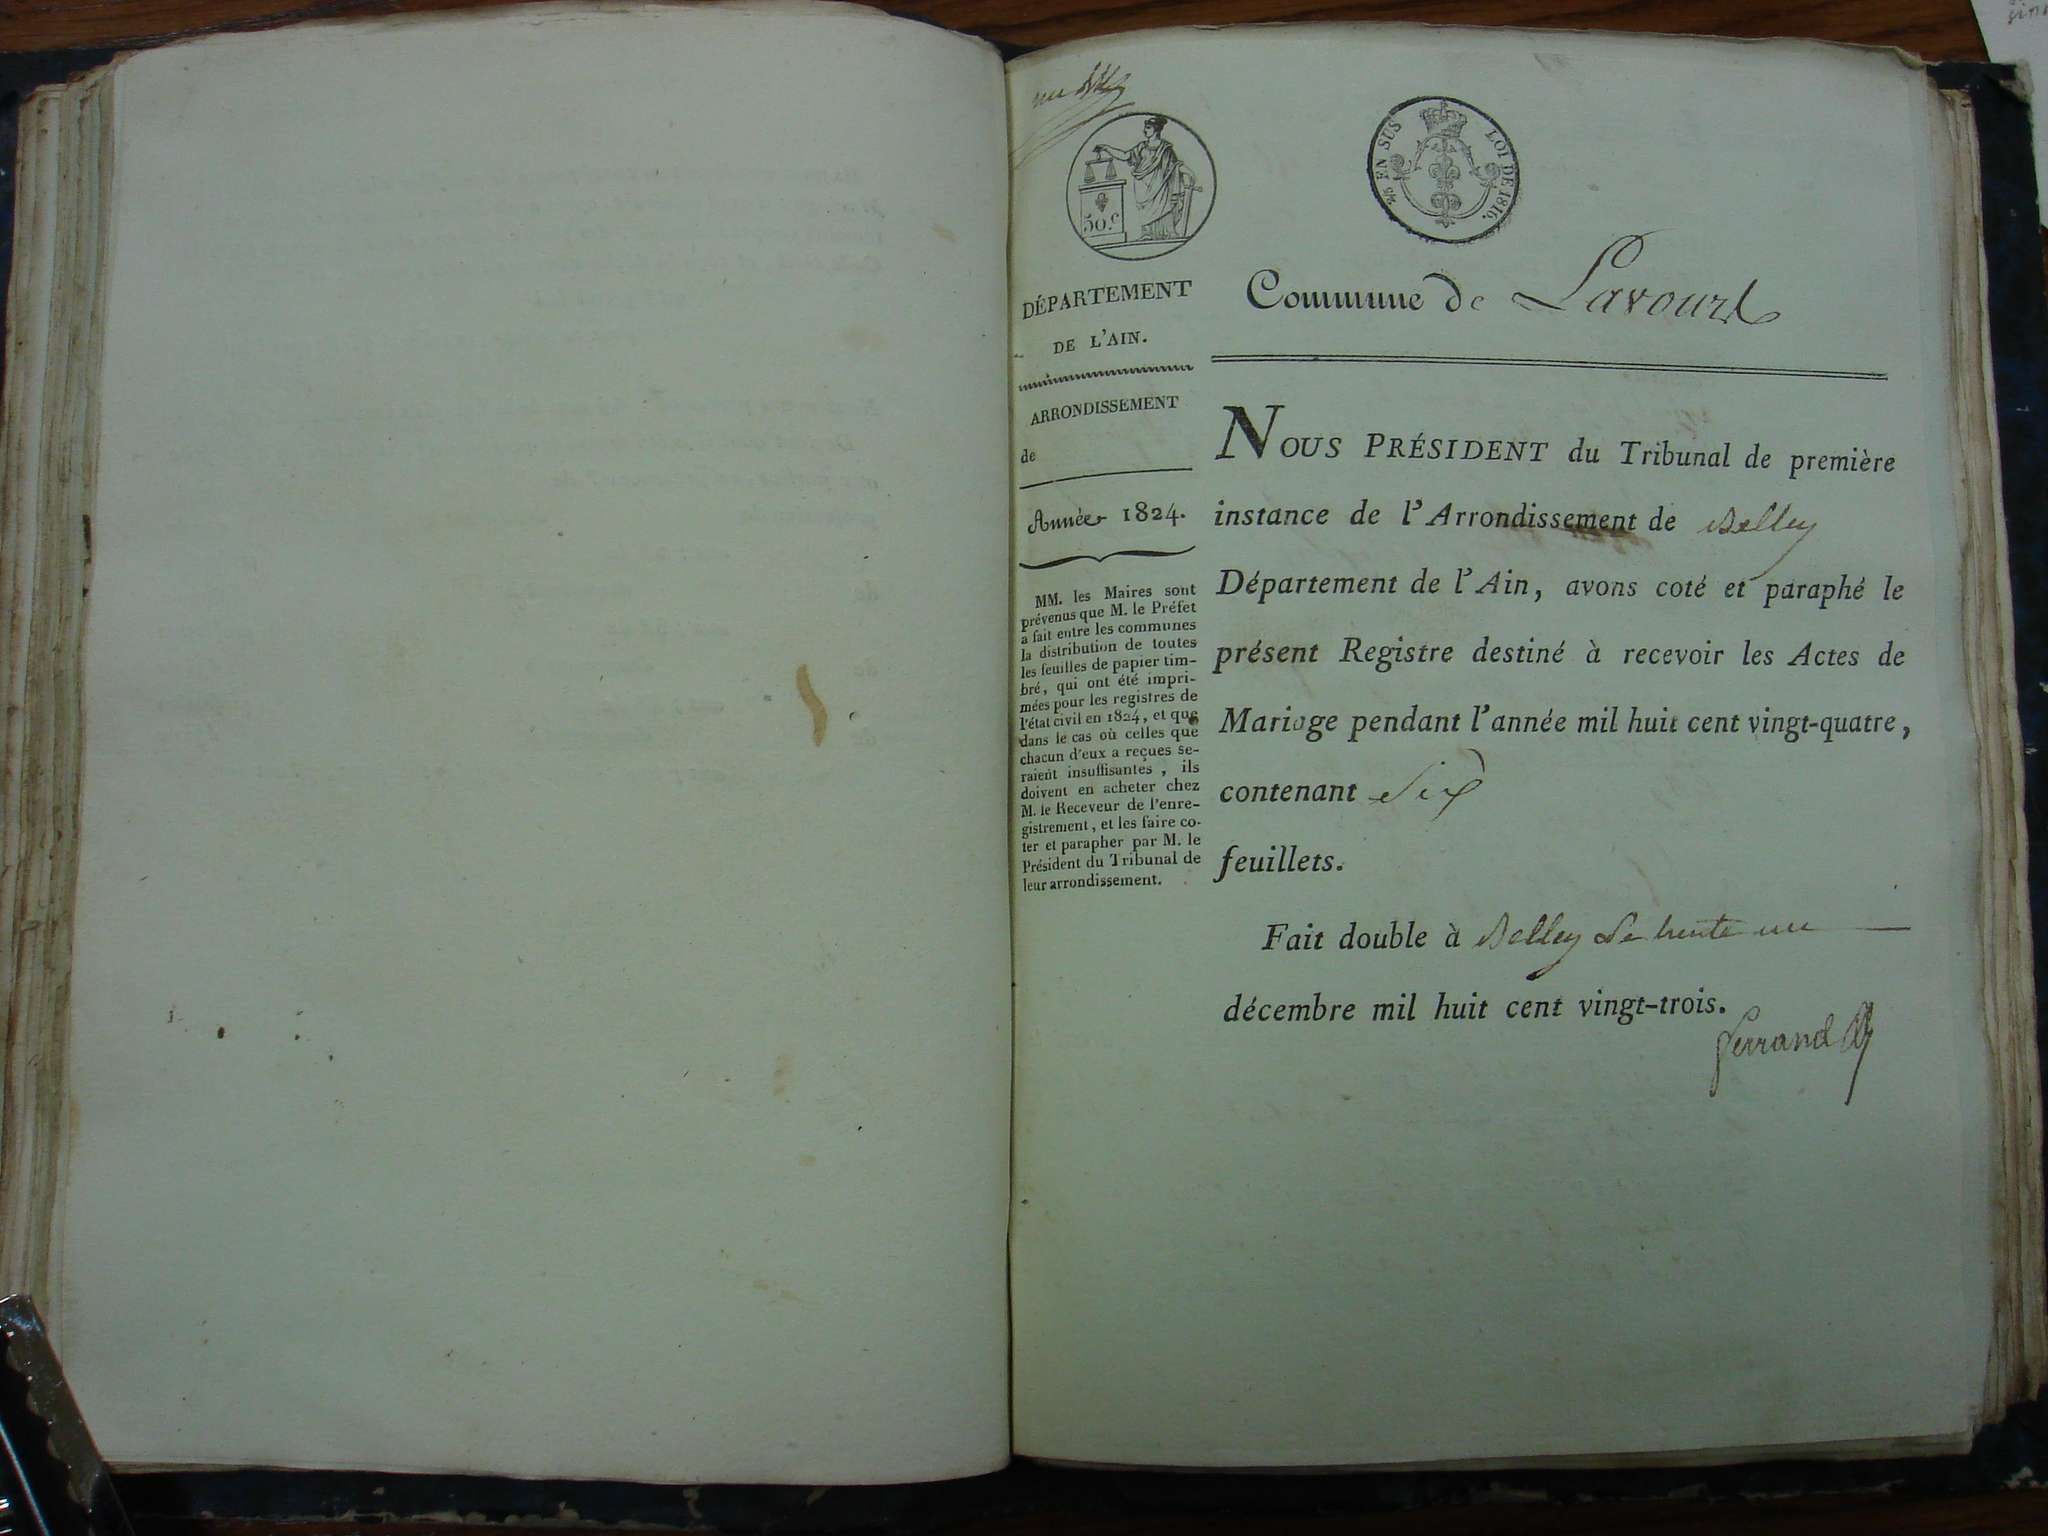 50.c
2/5 EN SUS
LOI DE 1816.
DÉPARTEMENT
DE L'AIN.
ARRONDISSEMENT
de
Année 1824.
MM. les Maires sont
prévenus que M. le Préfet
a fait entre les communes
la distribution de toutes
les feuilles de papier tim-
bré, qui ont été impri-
mées pour les registres de
l'état civil en 1824, et que
dans le cas où celles que
chacun d'eux a reçues se-
raient insuffisantes, ils
doivent en acheter chez
M. le Receveur de l'enre-
gistrement, et les faire co-
ter et parapher par M. le
Président du Tribunal de
leur arrondissement.
Commune de Lavours
NOUS PRÉSIDENT du Tribunal de première
instance de l'Arrondissement de Belley
Département de l'Ain, avons coté et paraphé le
présent Registre destiné à recevoir les Actes de
Mariage pendant l'année mil huit cent vingt-quatre,
contenant Six
feuillets.
Fait double à Belley le trente un
décembre mil huit cent vingt-trois.
ferrand